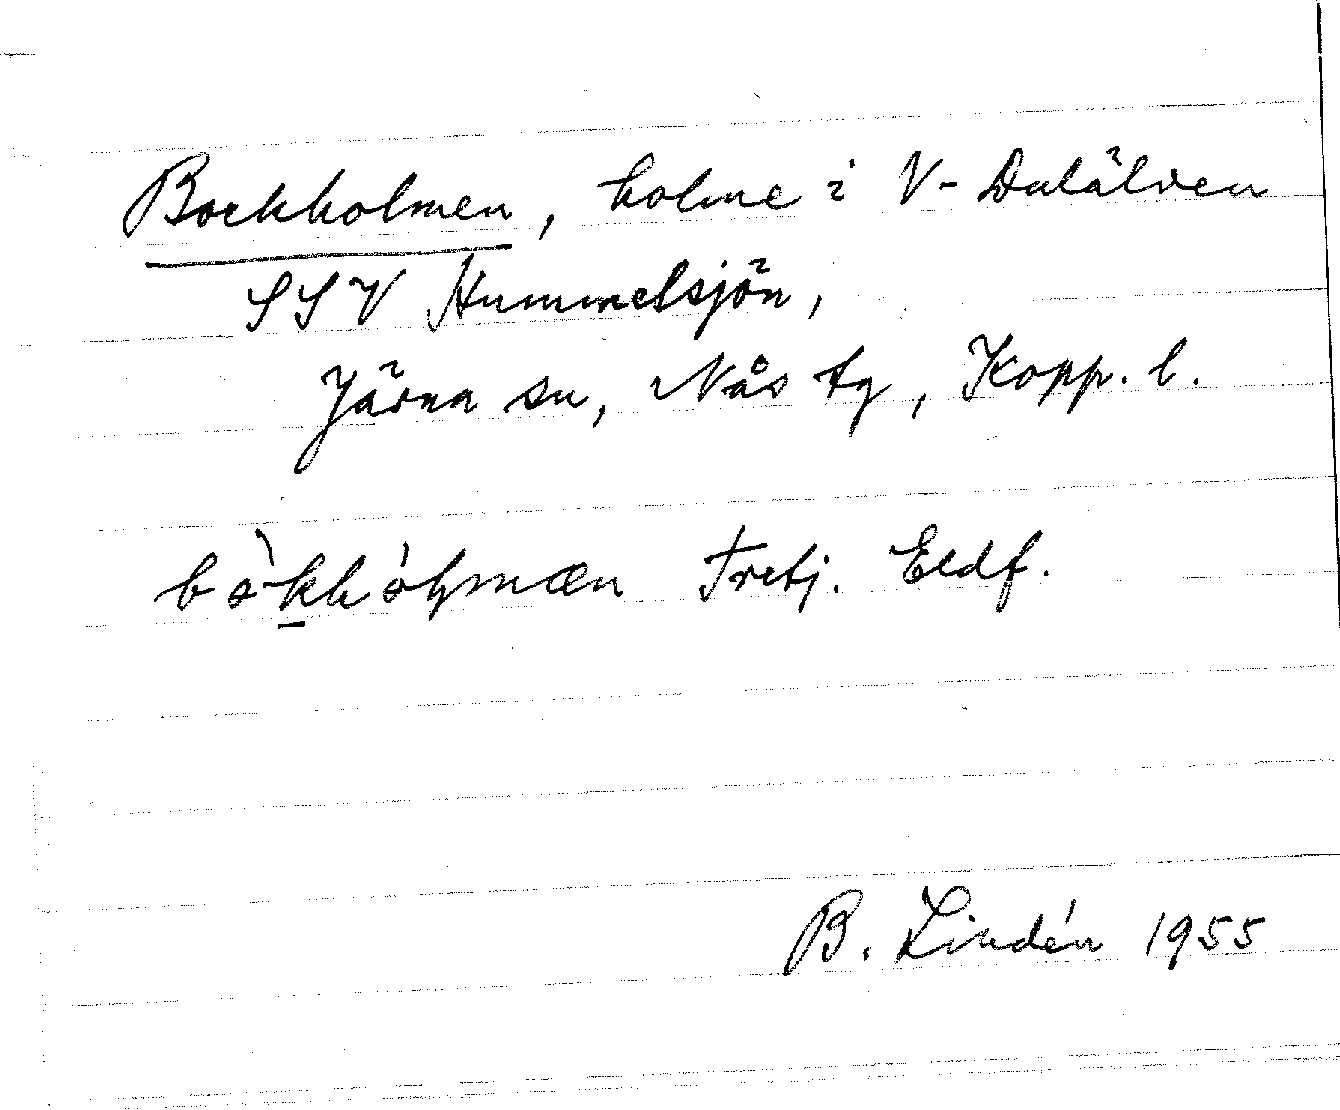 Bockholmen, holme i V-Dalälven
SSV Hummelsjön,
Järna sn, Nås tg, Kopp. l.
bòkhóḷmæn Tretj. Eldf.
B. Lindén 1955